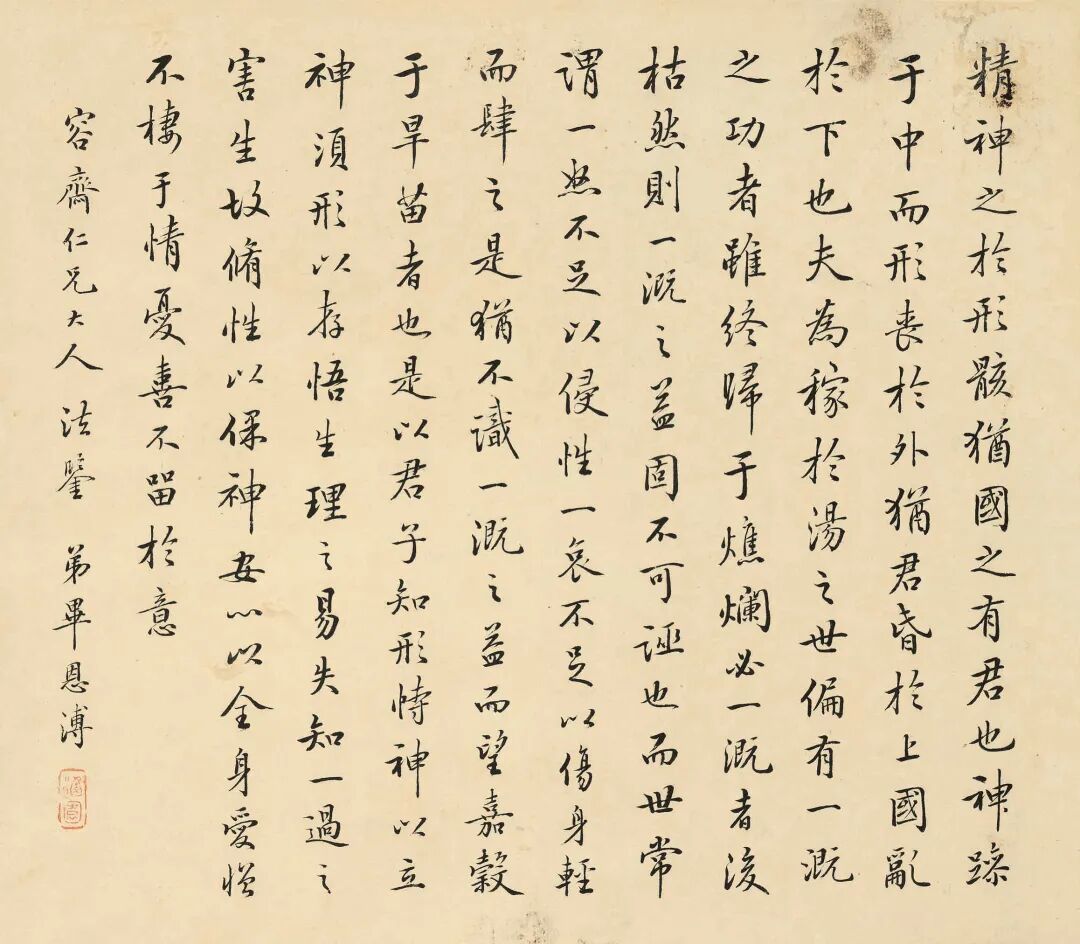 精神之於形骸猶國之有君也神躁
于中而形喪於外猶君昏於上國亂
於下也夫為稼於湯之世偏有一溉
之功者雖終歸于燋爛必一溉者後
枯然則一溉之益固不可誣也而世常
謂一怒不足以侵性一哀不足以傷身輕
而肆之是猶不識一溉之益而望嘉穀
于旱苗者也是以君子知形恃神以立
神須形以存悟生理之易失知一過之
害生故脩性以保神安心以全身愛憎
不棲于情憂喜不留於意
容齋仁兄大人 法鑒 弟畢恩溥